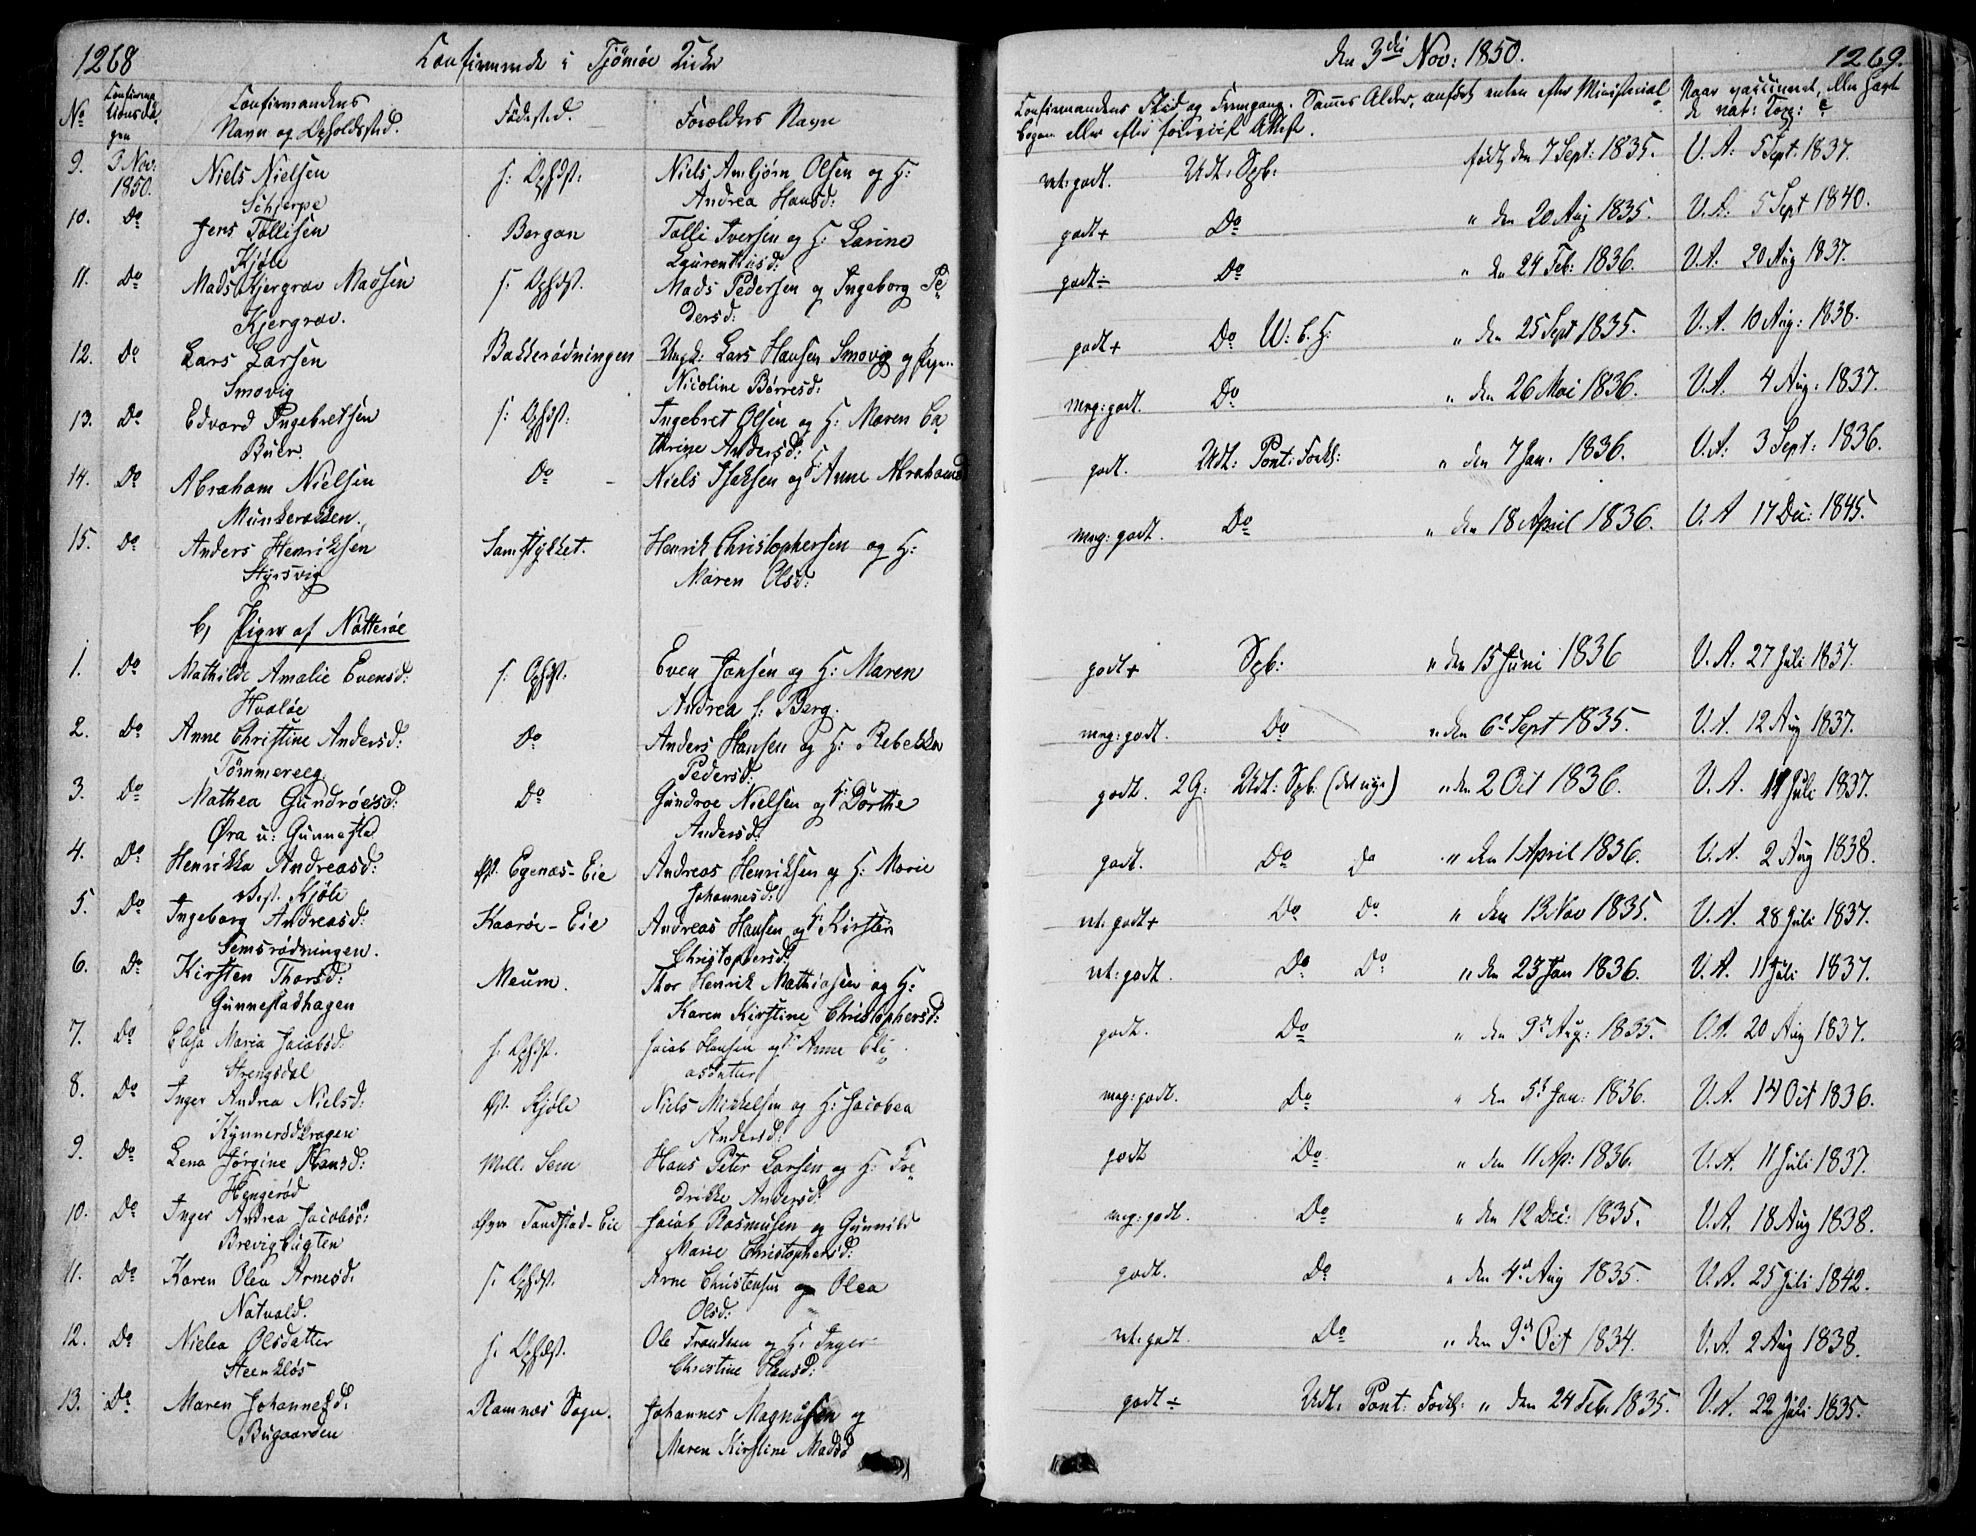 1268
Confirmerede i Tjömöe Kirke
No
Confirma
tionsda
gen
Confirmandens
Navn og Opholdssted.
Födested.
Forældres Navn
9. 3 Nov: Niels Nielsen f: Ophdst: Niels Anbjörn Olsen og H:
1850. Schjerpe Andrea Hansd:
10. Do Jens Tollisen Bergan Tolli Iversen og H: Larine
Kjöle Laurentiusd:
11. Do Mads Kjergrav Madsen f: Ophdst. Mads Pedersen og Ingeborg Pe
Kjergrav. dersd:
12. Do Lars Larsen Bakkerödningen Ungk: Lars Hansen Smovig og Pige
Smovig Nicoline Börresd:
13. Do Edvard Ingebretsen f: Ophdst: Ingebret Olsen og H: Maren Ca
Buer. thrine Andersd:
14. Do Abraham Nielsen Do Niels Isaksen og H: Anne Abrahamsd
Munkerekken.
15. Do Anders Henriksen Samstykket. Henrik Christophersen og H:
Styrsvig Maren Olsd:
b, Piger af Nötteröe
1. Do Mathilde Amalie Evensd: f: Ophdst. Even Jansen og H: Maren
Hvalöe Andrea f: Berg.
2. Do Anne Christine Andersd: Do Anders Hansen og H: Rebekka
Tömmereeg Pedersd:
3. Do Mathea Gundröesd: Do Gundroe Nielsen og H: Dorthe
Øra u: Gunnestad Andersd:
4. Do Henrikka Andreasd: Egenæs-Eie Andreas Henriksen og H: Marie
Kjöle Johannesd:
5. Do Ingeborg Andreasd: Kaaröe-Eie Andreas Hansen og H: Kirsten
Semsrödningen. Christophersd:
6. Do Kirsten Thorsd: Meum. Thor Henrik Mathiasen og H:
Gunnestadhagen Karen Kirstine Christophersd:
7. Do Elisa Maria Jacobsd: f: Ophdst. Jacob Hansen og H: Anne Eli
Strengsdal asdatter
8. Do Inger Andrea Nielsd: Kjöle Niels Mickelsen og H: Jacobea
Kynnerödkragen Andersd:
9. Do Lena Jörgine Hansd: Mell. Sem Hans Peter Larsen og H: Fre
Hengeröd drikke Andersd:
10. Do Inger Andrea Jacobsd: Øvre Tandstad-Eie Jacob Rasmusen og Gunnild
Brevigbugten Marie Christophersd:
11. Do Karen Olea Arnesd. f: Ophdst. Arne Christensen og Olea
Natvald. Olsd:
12. Do Nielea Olsdatter f: Ophdst. Ole Frantsen og H: Inger
Steenklös Christine Hansd:
13. Do Maren Johannesd. Ramnæs Sogn. Johannes Magnusen og
Bugaarden Maren Kirstine Madsd
den 3die Nov: 1850.
1269.
Confirmandens Flid og Fremgang. Sammes Alder, anfört enten efter Ministerial
bogen eller efter foreviist Attest.
Naar vaccineret, eller havt
de nat: Kop: c
mt: godt. Udt: Spb: født den 7 Sept: 1835. V. A: 5 Sept: 1837.
godt+ Do " den 20 Aug 1835. V. A: 5 Sept 1840.
godt÷ Do " den 24 Feb: 1836. V. A. 20 Aug 1837.
godt+ Do W: b. H: " den 25 Sept 1835. V. A. 10 Aug: 1838.
meg: godt. Do " den 26 Mai 1836. V. A. 4 Aug. 1837.
godt. Udt: Pont: Forkl: " den 7 Jan. 1836. V. A: 3 Sept: 1836.
meg: godt. Do " den 18 April 1836. V. A 17 Dec: 1845.
godt+ Spb: " den 15 Juni 1836 V. A. 27 Juli 1837.
meg: godt. Do " den 6t Sept 1835. V. A. 12 Aug 1837.
godt. 2G: Udt: Spb: (det nye) " den 2 Oct 1836. V. A. 11 Juli 1837.
godt. Do Do " den 1 April 1836. V. A. 2 Aug 1838.
mt. godt+ Do Do " den 13 Nov 1835. V. A. 28 Juli 1837.
mt: godt. Do Do " den 23 Jan 1836. V. A. 11 Juli 1837.
godt. Do " den 9de Aug: 1835. V. A. 20 Aug 1837.
meg: godt. Do " den 5t Jan: 1836. V. A. 14 Oct 1836.
godt Do " den 11 Ap: 1836. V. A. 11 Juli 1837.
meg: godt. Do " den 12 Dec: 1835. V. A. 18 Aug 1838.
godt. Do " den 4de Aug 1835. V. A. 25 Juli 1842.
mt: godt. Do " den 9de Oct 1834. V. A. 2 Aug 1838.
godt÷ Udt. Pont: Forkl: " den 24 Feb. 1835. V. A. 22 Juli 1835.